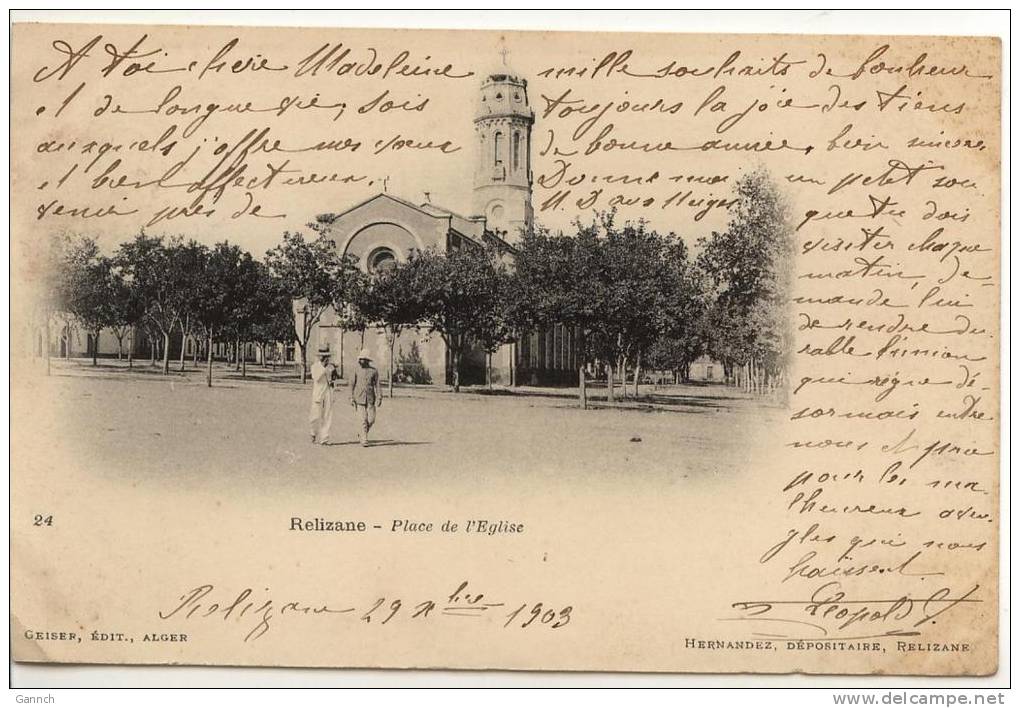 A toi chère Madeleine mille souhaits de bonheur
et de longue vie; sois toujours la joie des tiens
auxquels j'offre mes vœux de bonne année, bien sincères
et bien affectueux. Donne moi un petit sou
venir près de N.D aux Neiges
que tu dois
visiter chaque
matin, de-
mande lui
de rendre du
rable l'union
qui règne dé-
sormais entre
nous et prie
pour les ma-
lheureux aveu-
gles qui nous
haïssent.
Léopold
24
Relizane - Place de l'Eglise
Relizane 29 Xbre 1903
GEISER, ÉDIT., ALGER
HERNANDEZ, DÉPOSITAIRE, RELIZANE
Gannch
http://www.delcampe.net